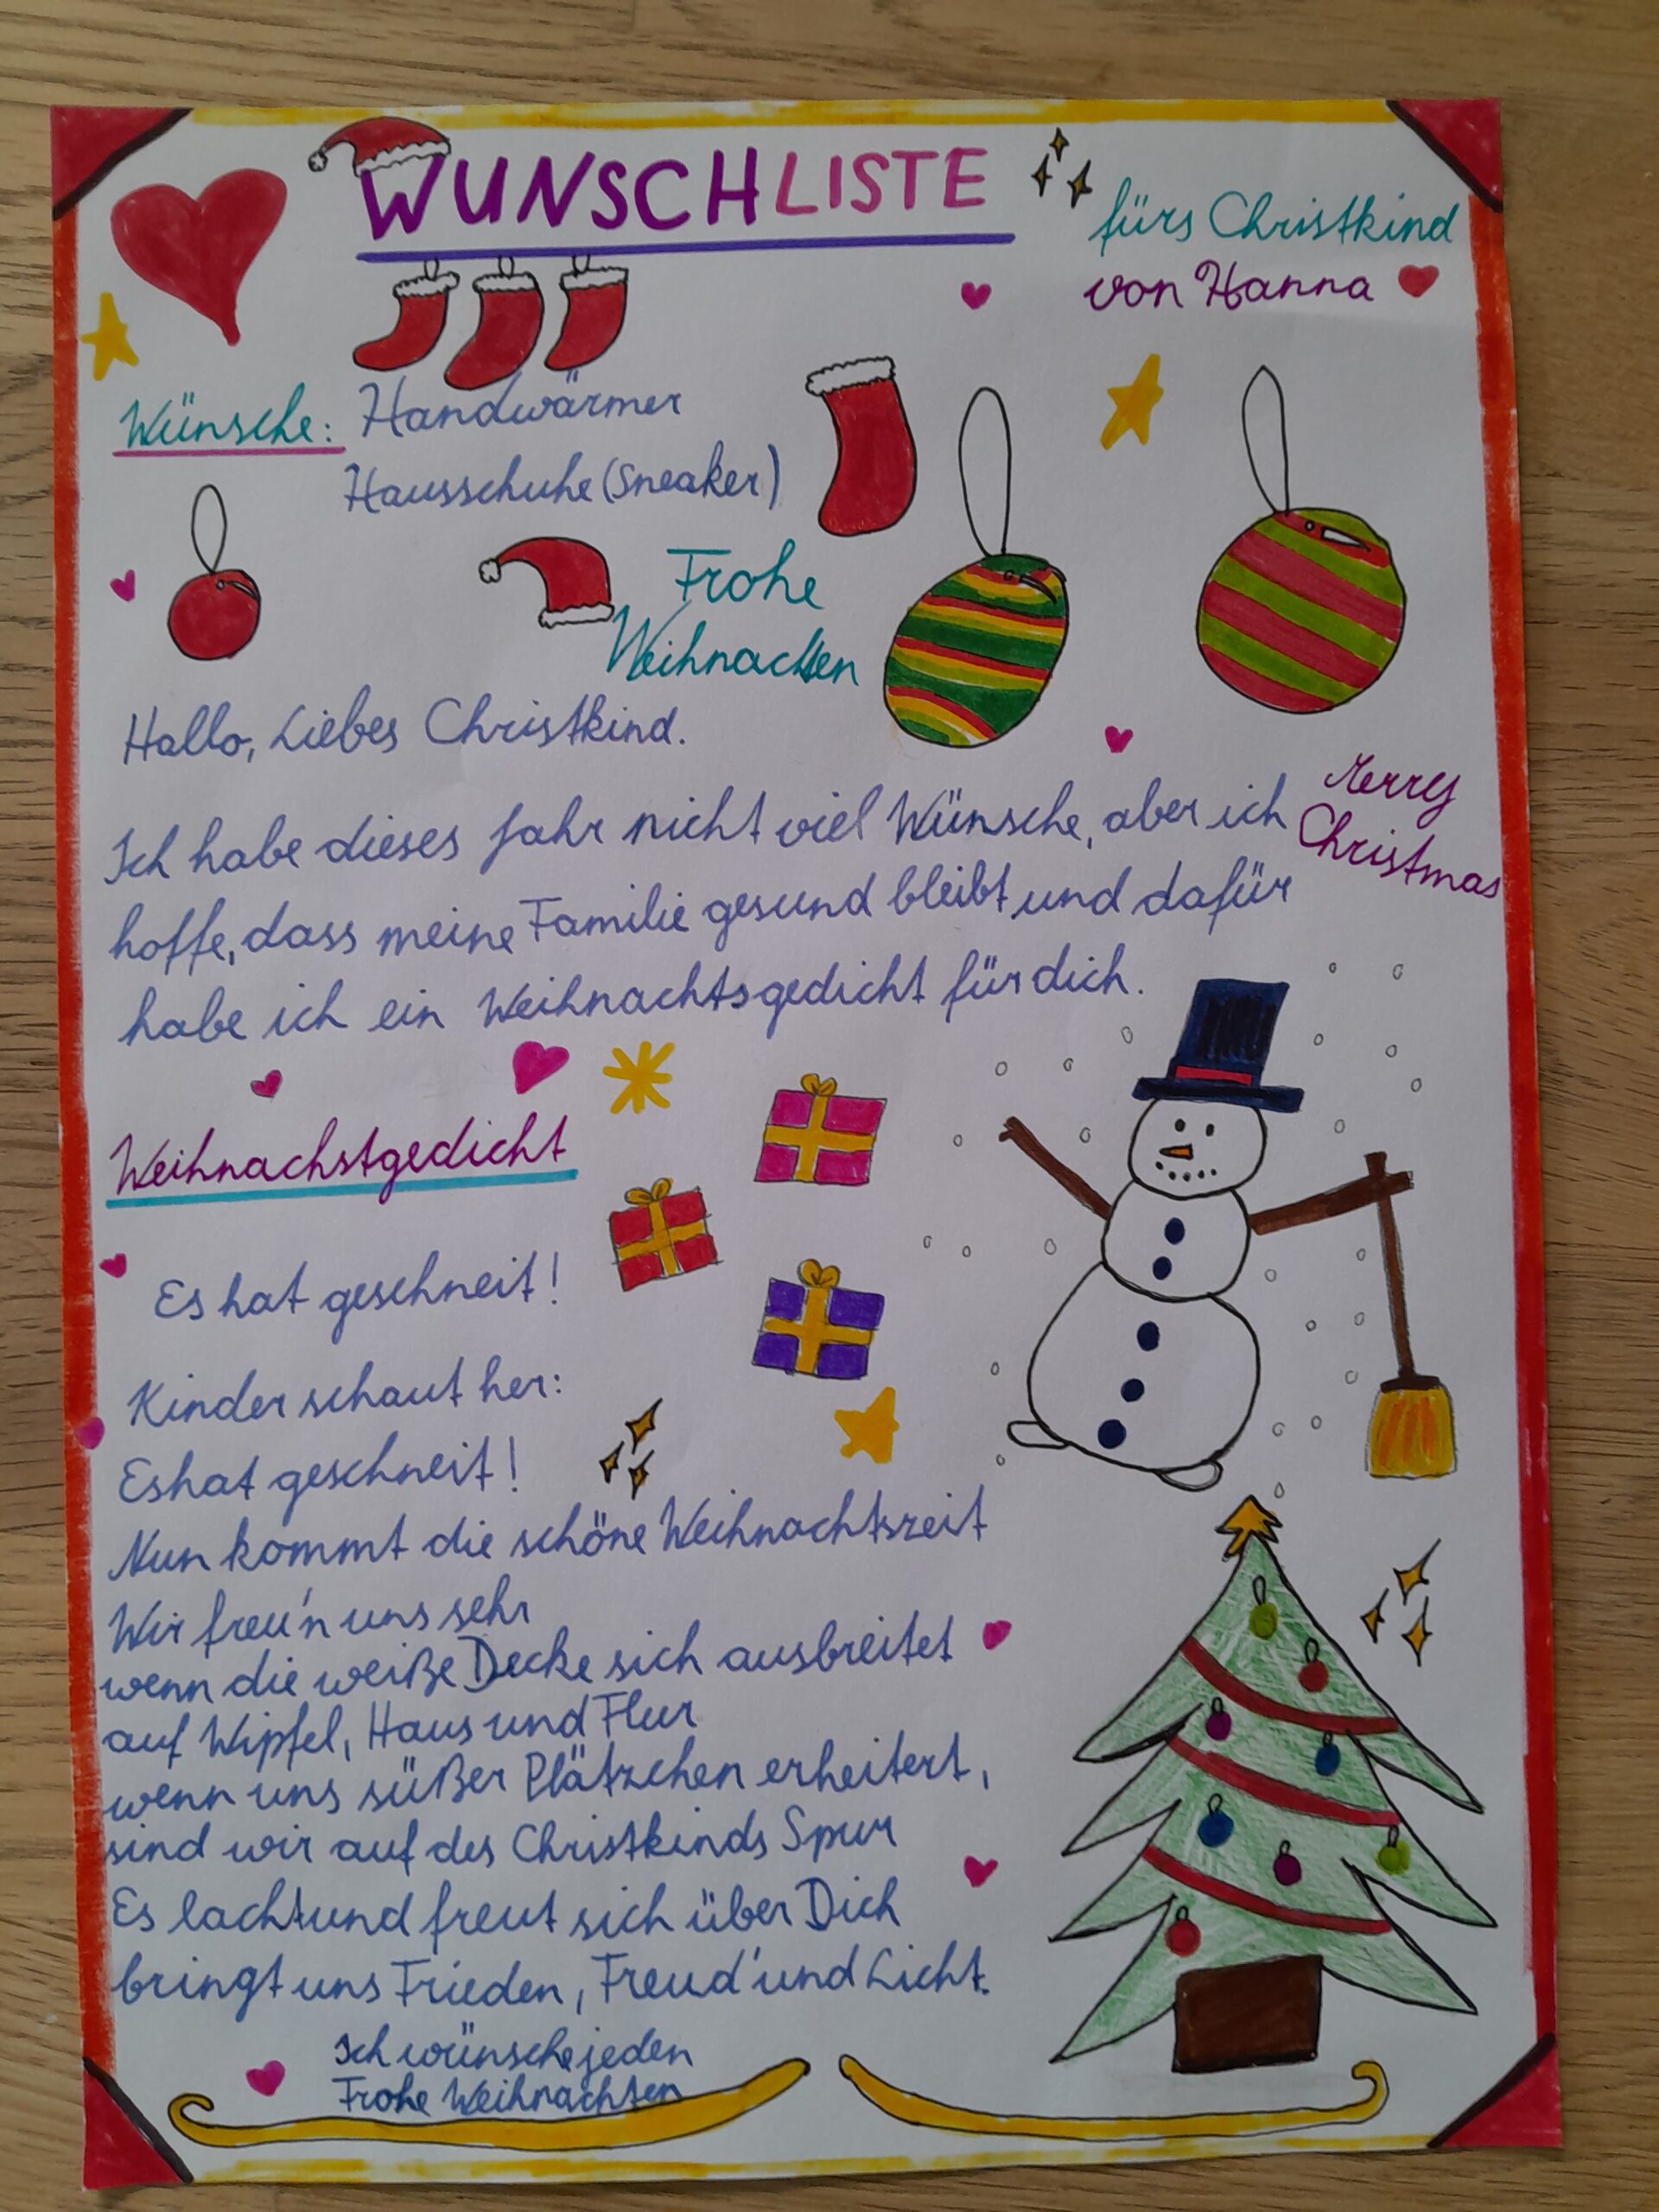 WUNSCHLISTE
fürs Christkind
von Hanna
Wünsche: Handwärmer
Hausschuhe (Sneaker)
Frohe
Weihnachten
Hallo, Liebes Christkind.
Merry
Christmas
Ich habe dieses Jahr nicht viel Wünsche, aber ich
hoffe, dass meine Familie gesund bleibt und dafür
habe ich ein Weihnachtsgedicht für dich.
Weihnachstgedicht
Es hat geschneit!
Kinder schaut her:
Es hat geschneit!
Nun kommt die schöne Weihnachtszeit
Wir freu'n uns sehr
wenn die weiße Decke sich ausbreitet
auf Wipfel, Haus und Flur
wenn uns süßer Plätzchen erheitert,
sind wir auf des Christkinds Spur
Es lacht und freut sich über Dich
bringt uns Frieden, Freud' und Licht.
Ich wünsche jeden
Frohe Weihnachten